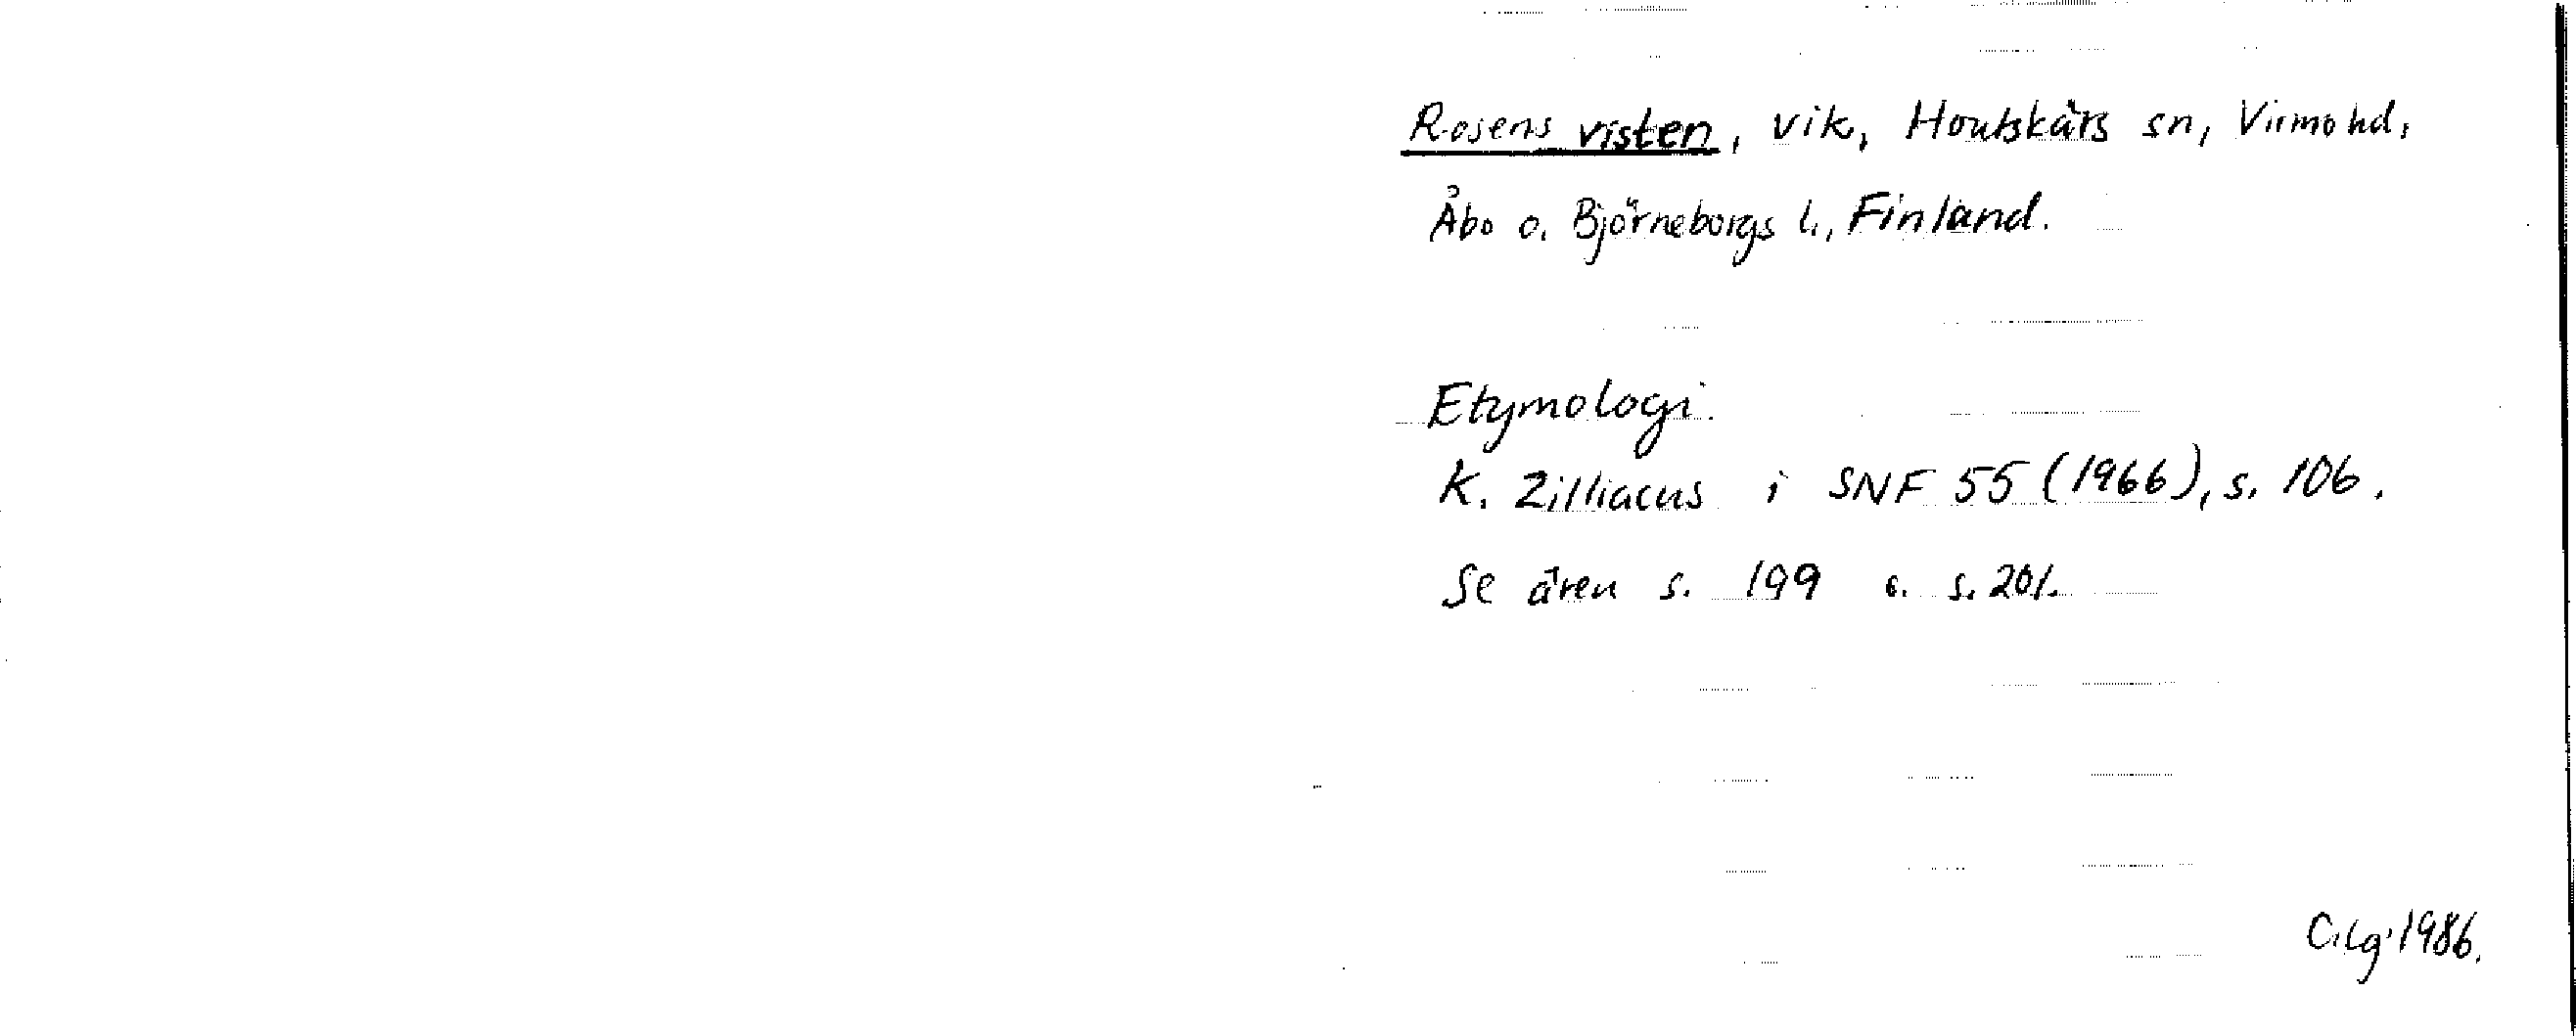 Rosens visten, vik, Houtskärs sn, Virmo hd,
Åbo o. Björneborgs l., Finland.
Etymologi.
K. Zilliacus i SNF 55 (1966), s. 106.
Se även s. 199 o. s. 201.
C.Lg. 1986.